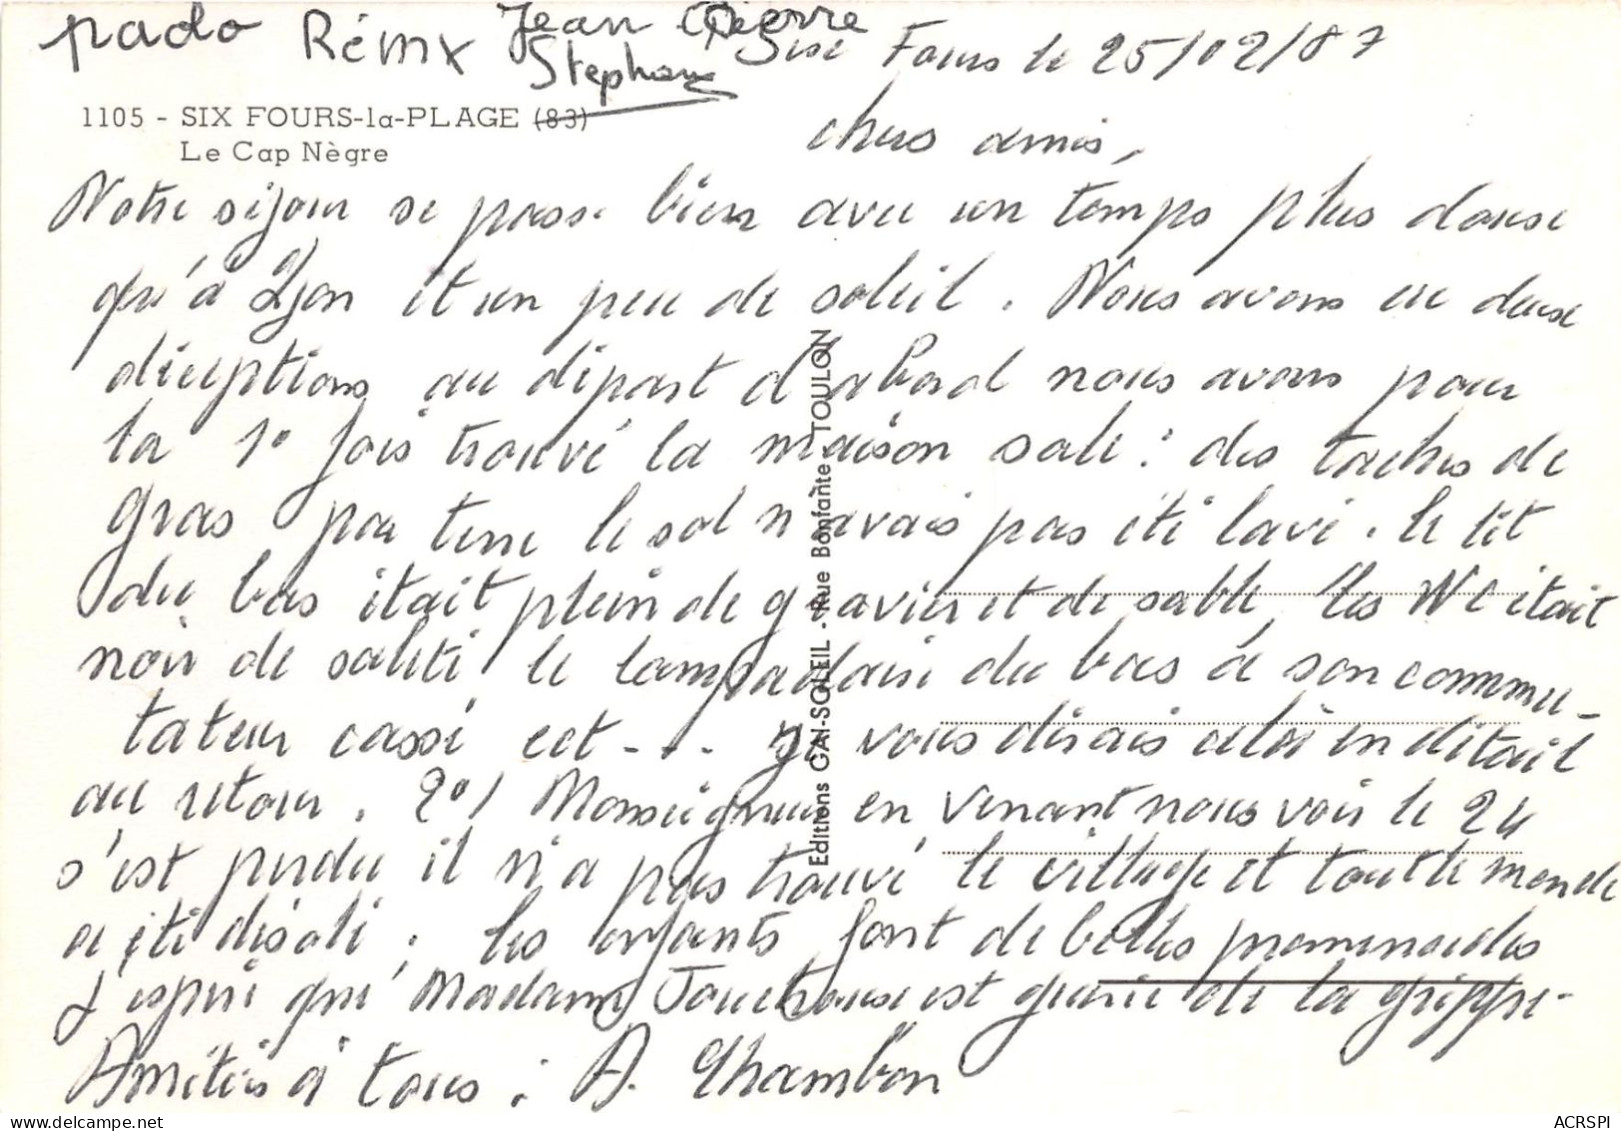 pado Rémx Jean Pierre
Stephane
Six Fours le 25/02/87
1105 - SIX FOURS-la-PLAGE (83)
Le Cap Nègre
chers amis,
Notre séjour se passe bien avec un temps plus doux
qu'à Lyon et un peu de soleil. Nous avons eu deux
déceptions au départ d'abord nous avons pour
la 1° fois trouvé la maison sale : des taches de
gras par terre le sol n'avais pas été lavé. le lit
du bas était plein de gravier et de sable, les WC était
noir de saleté le lampadaire du bas à son commu-
tateur cassé ect... je vous dirais celà en détail
au retour. 2°/ Monseigneur en venant nous voir le 24
s'est perdu il n'a pas trouvé le village et tout le monde
a été désolé ; les enfants font de belles promenades
J'espère que Madame est guérie de la grippe-
Amitiés à tous : A. Chambon
Editions GAI-SOLEIL - Rue Bonfante - TOULON
ACRSPI